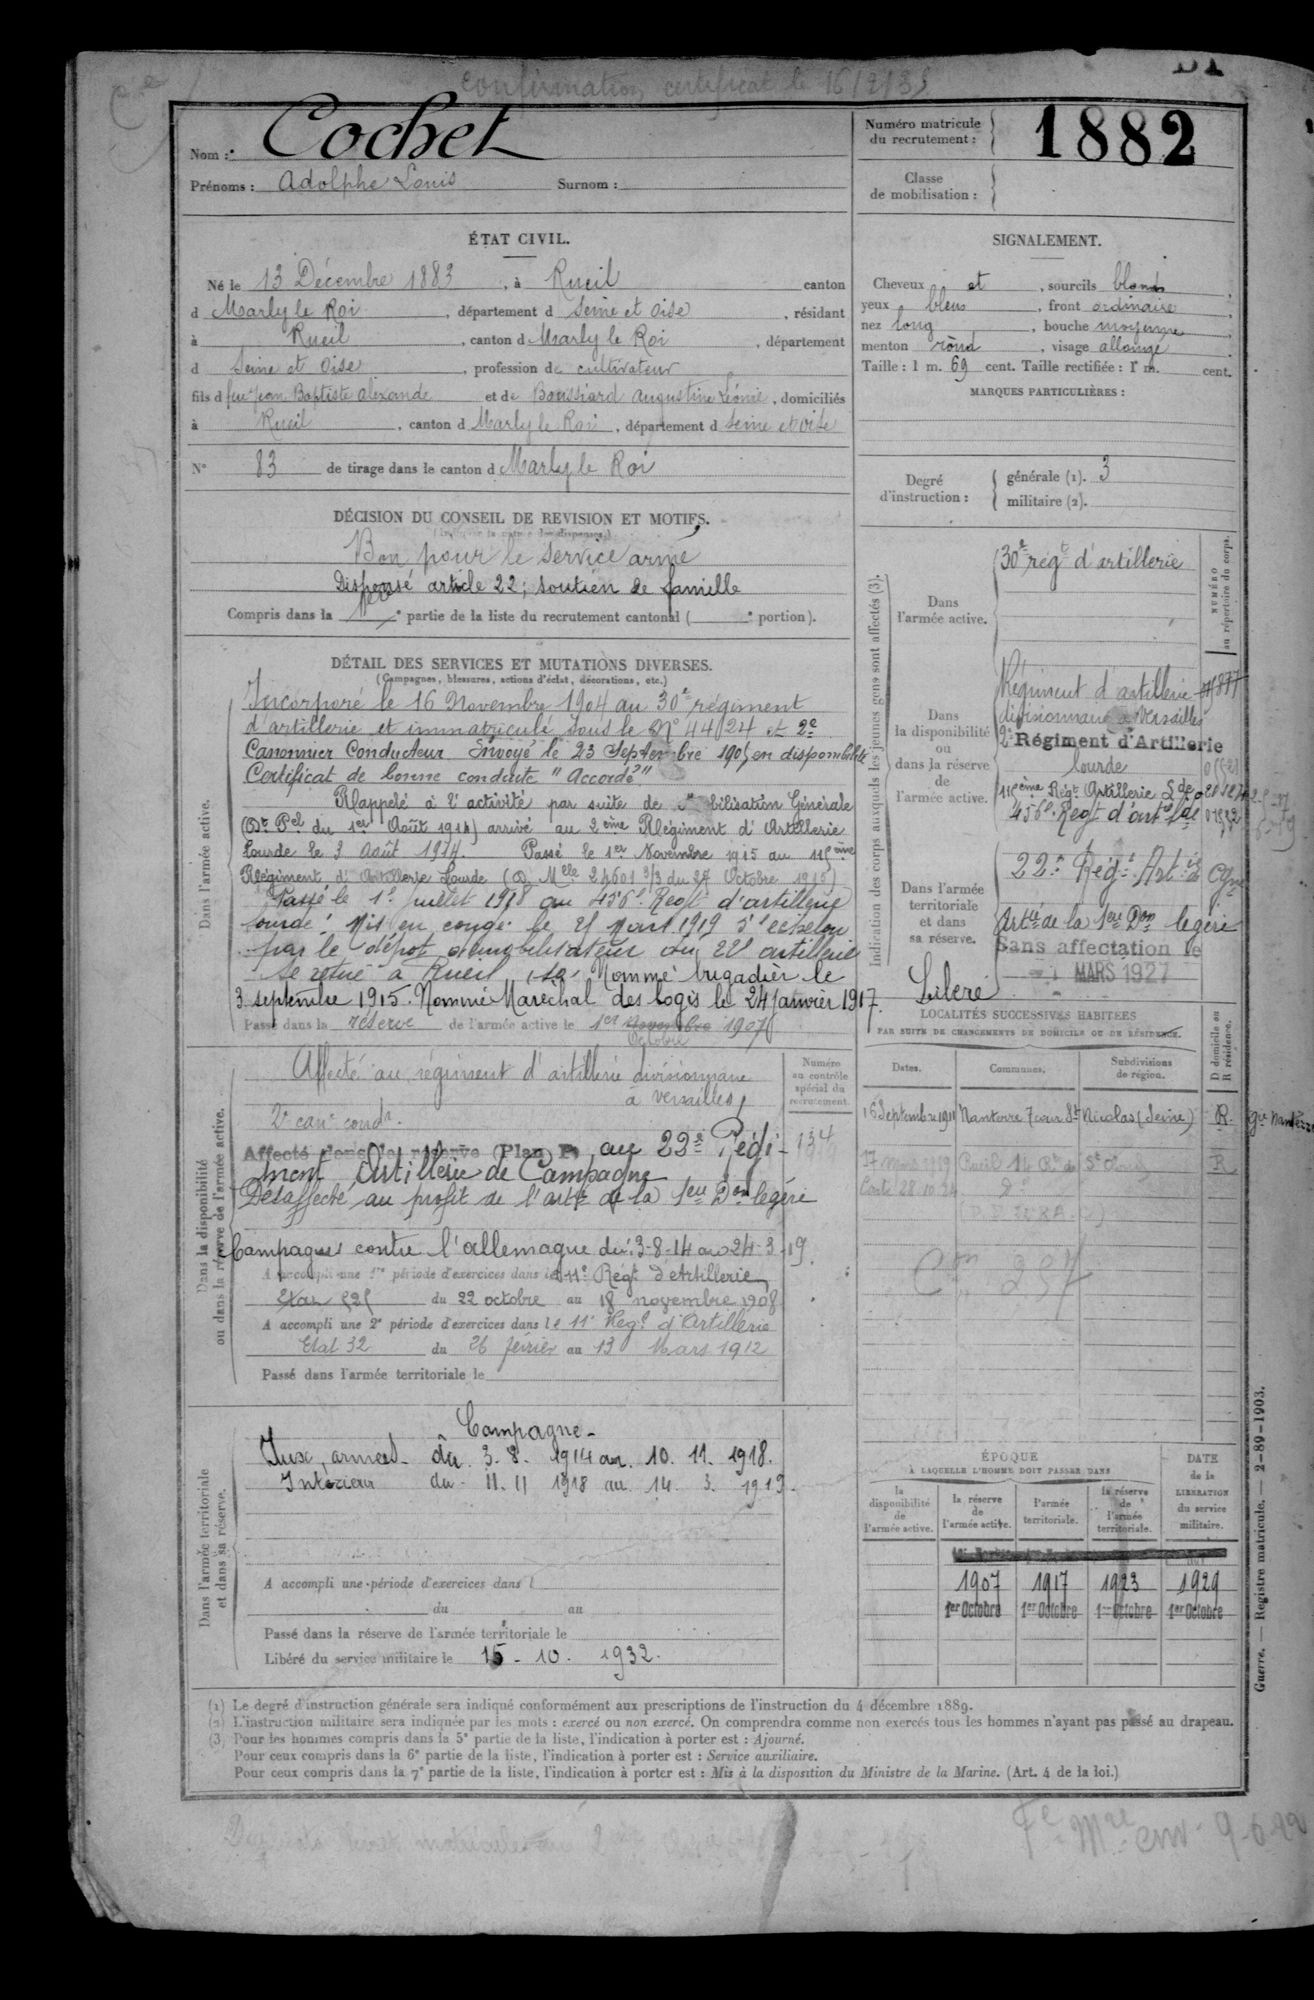 Confirmation certificat le 16/2/35
Nom : Cochet
Prénoms : Adolphe Louis Surnom :
Numéro matricule du recrutement : 1882
Classe de mobilisation :
ÉTAT CIVIL.
Né le 13 Décembre 1883, à Rueil canton
d Marly le Roi, département d Seine et Oise, résidant
à Rueil, canton d Marly le Roi, département
d Seine et Oise, profession de cultivateur
fils d feu Jean Baptiste Alexandre et de Boussiard Augustine Léonie, domiciliés
à Rueil, canton d Marly le Roi, département d Seine et Oise
N° 83 de tirage dans le canton d Marly le Roi
SIGNALEMENT.
Cheveux et, sourcils blonds
yeux bleus, front ordinaire,
nez long, bouche moyenne
menton rond, visage allongé
Taille : 1 m. 69 cent. Taille rectifiée : 1 m. cent.
MARQUES PARTICULIÈRES :
Degré d'instruction : générale (1). 3
militaire (2).
DÉCISION DU CONSEIL DE REVISION ET MOTIFS.
Bon pour le service armé
Dispensé article 22; soutien de famille
Compris dans la 1ère partie de la liste du recrutement cantonal ( e portion).
DÉTAIL DES SERVICES ET MUTATIONS DIVERSES.
(Campagnes, blessures, actions d'éclat, décorations, etc.)
Dans l'armée active.
Incorporé le 16 Novembre 1904 au 30e régiment
d'artillerie et immatriculé sous le N° 4424 et 2e
Canonnier Conducteur Envoyé le 23 Septembre 1905 en disponibilité
Certificat de bonne conduite "Accordé"
Rappelé à l'activité par suite de mobilisation Générale
(Dt Pel du 1er Août 1914) arrivé au 2ème Régiment d'Artillerie
Lourde le 3 Août 1914. Passé le 1er Novembre 1915 au 115ème
Régiment d'Artillerie Lourde (D. Melle 24601 3/3 du 27 Octobre 1915)
Passé le 1er juillet 1918 au 456e Regt d'artillerie
lourde. Mis en congé le 21 Mars 1919 5e echelon
par le dépot démobilisateur du 22e artillerie
se retire à Rueil, Nommé brigadier le
3 septembre 1915. Nommé Maréchal des logis le 24 janvier 1917.
Passé dans la réserve de l'armée active le 1er Novembre 1907
Octobre
Indication des corps auxquels les jeunes gens sont affectés (3).
NUMÉRO au répertoire du corps.
Dans l'armée active.
30e régt d'artillerie
Dans la disponibilité ou dans la réserve de l'armée active.
Régiment d'artillerie
divisionnaire à Versailles
2e Régiment d'Artillerie
lourde
115ème Régt Artillerie Lde
456e Regt d'art Lde
Dans l'armée territoriale et dans sa réserve.
22e Régt Artie
Artie de la 1ère Don légère
Sans affectation le
MARS 1927
Libéré
LOCALITÉS SUCCESSIVES HABITÉES
PAR SUITE DE CHANGEMENTS DE DOMICILE OU DE RÉSIDENCE.
Dates. Communes. Subdivisions de région. D domicile ou R résidence.
16 Septembre 1911 Nanterre 7 cour St Nicolas (Seine) R. gie Nanterre
17 Mars 1919 Rueil 14 R. de St Cloud R
28.10.24
Dans la disponibilité ou dans la réserve de l'armée active.
Numéro au contrôle spécial du recrutement.
Affecté au régiment d'artillerie divisionnaire
à Versailles
2e canr condr
Affecté dans la réserve (Plan P) au 22e Régi-
ment Artillerie de Campagne
134
Désaffecté au profit de l'artie de la 1ère Don légère
Campagnes contre l'allemagne du 3-8-14 au 24-3-19
A accompli une 1re période d'exercices dans le 11e Régt d'Artillerie
du 22 octobre au 18 novembre 1908
A accompli une 2e période d'exercices dans le 11e Régt d'Artillerie
Etat 32 du 26 février au 13 Mars 1912
Passé dans l'armée territoriale le
Dans l'armée territoriale et dans sa réserve.
Campagne-
Aux armées du 3. 8. 1914 au 10. 11. 1918.
Intérieur du 11. 11 1918 au 14. 3. 1919.
A accompli une période d'exercices dans l
du au
Passé dans la réserve de l'armée territoriale le
Libéré du service militaire le 15 - 10. 1932.
ÉPOQUE
À LAQUELLE L'HOMME DOIT PASSER DANS
DATE de la LIBÉRATION du service militaire.
la disponibilité de l'armée active. la réserve de l'armée active. l'armée territoriale. la réserve de l'armée territoriale.
1907 1917 1923 1929
1er Octobre 1er Octobre 1er Octobre 1er Octobre
Guerre. — Registre matricule. — 2-89-1903.
(1) Le degré d'instruction générale sera indiqué conformément aux prescriptions de l'instruction du 4 décembre 1889.
(2) L'instruction militaire sera indiquée par les mots : exercé ou non exercé. On comprendra comme non exercés tous les hommes n'ayant pas passé au drapeau.
(3) Pour les hommes compris dans la 5e partie de la liste, l'indication à porter est : Ajourné.
Pour ceux compris dans la 6e partie de la liste, l'indication à porter est : Service auxiliaire.
Pour ceux compris dans la 7e partie de la liste, l'indication à porter est : Mis à la disposition du Ministre de la Marine. (Art. 4 de la loi.)